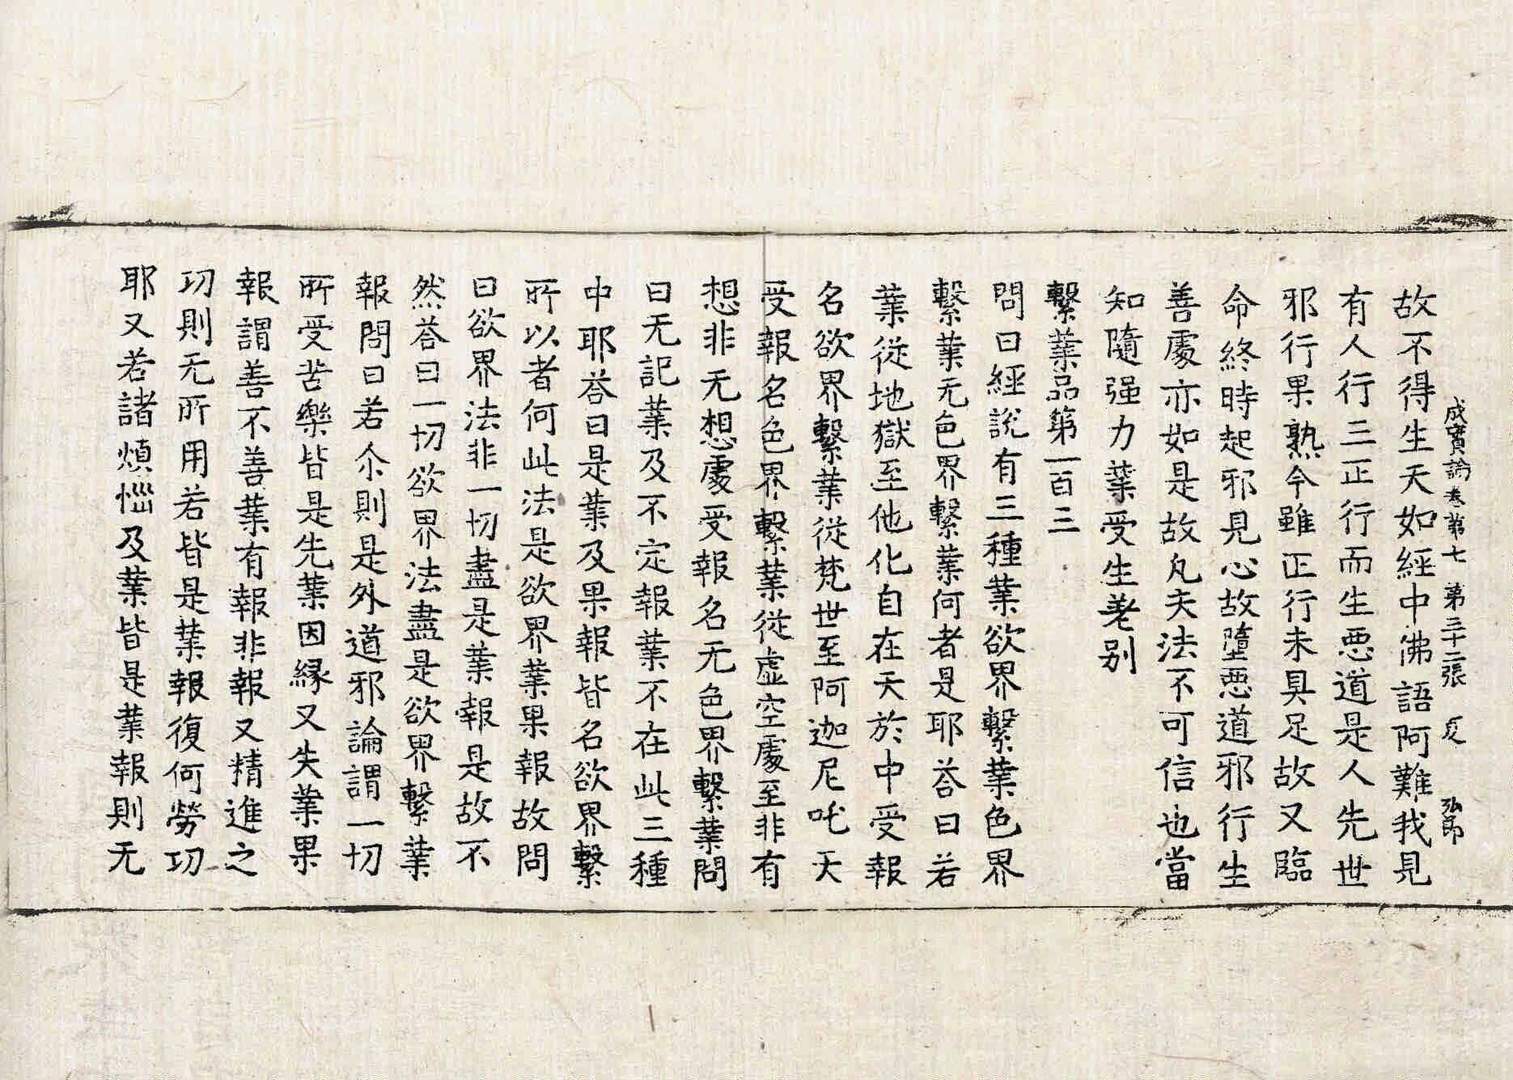 成實論卷第七 第三十二張 㕛 弘昂
故不得生天如經中佛語阿難我見
有人行三正行而生惡道是人先世
邪行果熟今雖正行未具足故又臨
命終時起邪見心故墮惡道邪行生
善處亦如是故凡夫法不可信也當
知隨强力業受生差别
繫業品第一百三
問曰經說有三種業欲界繫業色界
繫業无色界繫業何者是耶荅曰若
業從地獄至他化自在天於中受報
名欲界繫業從梵世至阿迦尼吒天
受報名色界繫業從虛空處至非有
想非无想處受報名无色界繫業問
曰无記業及不定報業不在此三種
中耶荅曰是業及果報皆名欲界繫
所以者何此法是欲界業果報故問
曰欲界法非一切盡是業報是故不
然荅曰一切欲界法盡是欲界繫業
報問曰若尒則是外道邪論謂一切
所受苦樂皆是先業因縁又失業果
報謂善不善業有報非報又精進之
功則无所用若皆是業報復何勞功
耶又若諸煩惱及業皆是業報則无